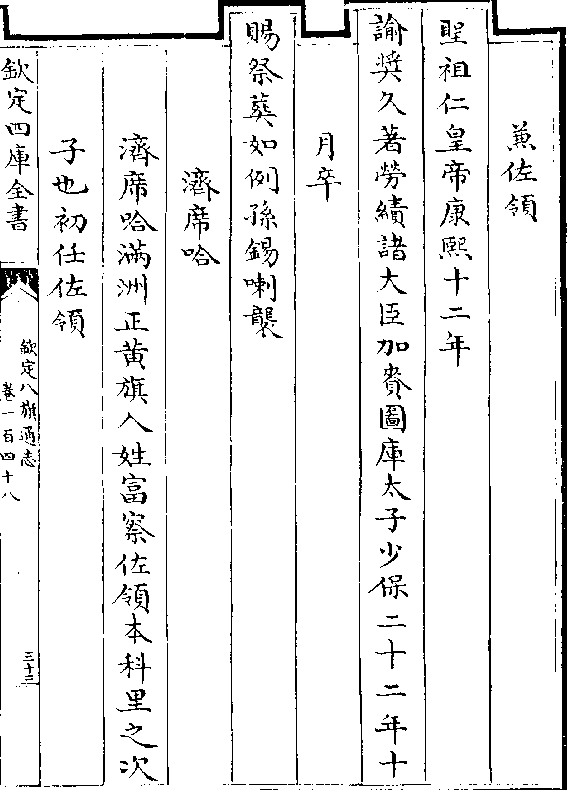 兼佐領
聖祖仁皇帝康熙十二年
諭奬久著勞績諸大臣加賚圖庫太子少保二十二年十
月卒
賜祭葬如例孫錫喇襲
濟席哈
濟席哈滿洲正黄旗人姓富察佐領本科里之次
子也初任佐領
欽定四庫全書
欽定八旗通志
卷一百四十八
三十三